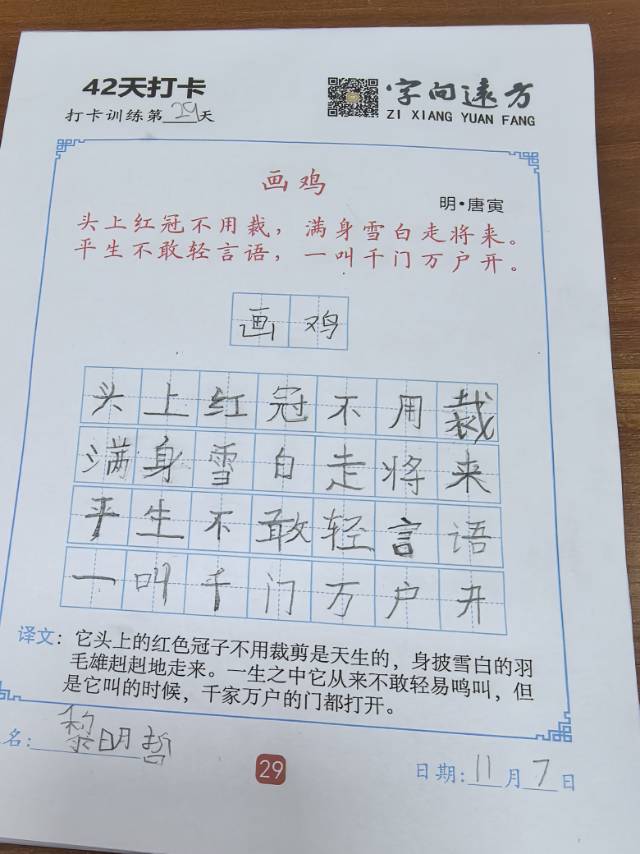 42天打卡
打卡训练第29天
字向远方
ZI XIANG YUAN FANG
画鸡
明·唐寅
头上红冠不用裁，满身雪白走将来。
平生不敢轻言语，一叫千门万户开。
画鸡
头上红冠不用裁
满身雪白走将来
平生不敢轻言语
一叫千门万户开
译文：它头上的红色冠子不用裁剪是天生的，身披雪白的羽
毛雄赳赳地走来。一生之中它从来不敢轻易鸣叫，但
是它叫的时候，千家万户的门都打开。
名：黎明哲
29
日期：11月7日